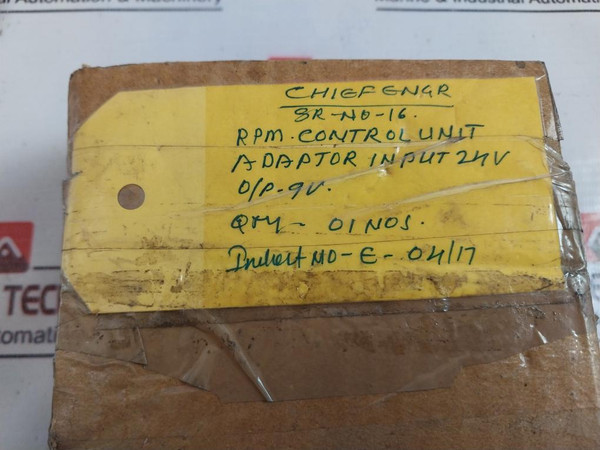 al Automation & Machinery
Marine & Industrial Automation & M
CHIEF ENGR
SR-NO-16.
RPM. CONTROL UNIT
ADAPTOR INPUT 24V
O/P-9V.
QTY- 01 NOS.
Indent NO-E-04/17
TECH
utomati